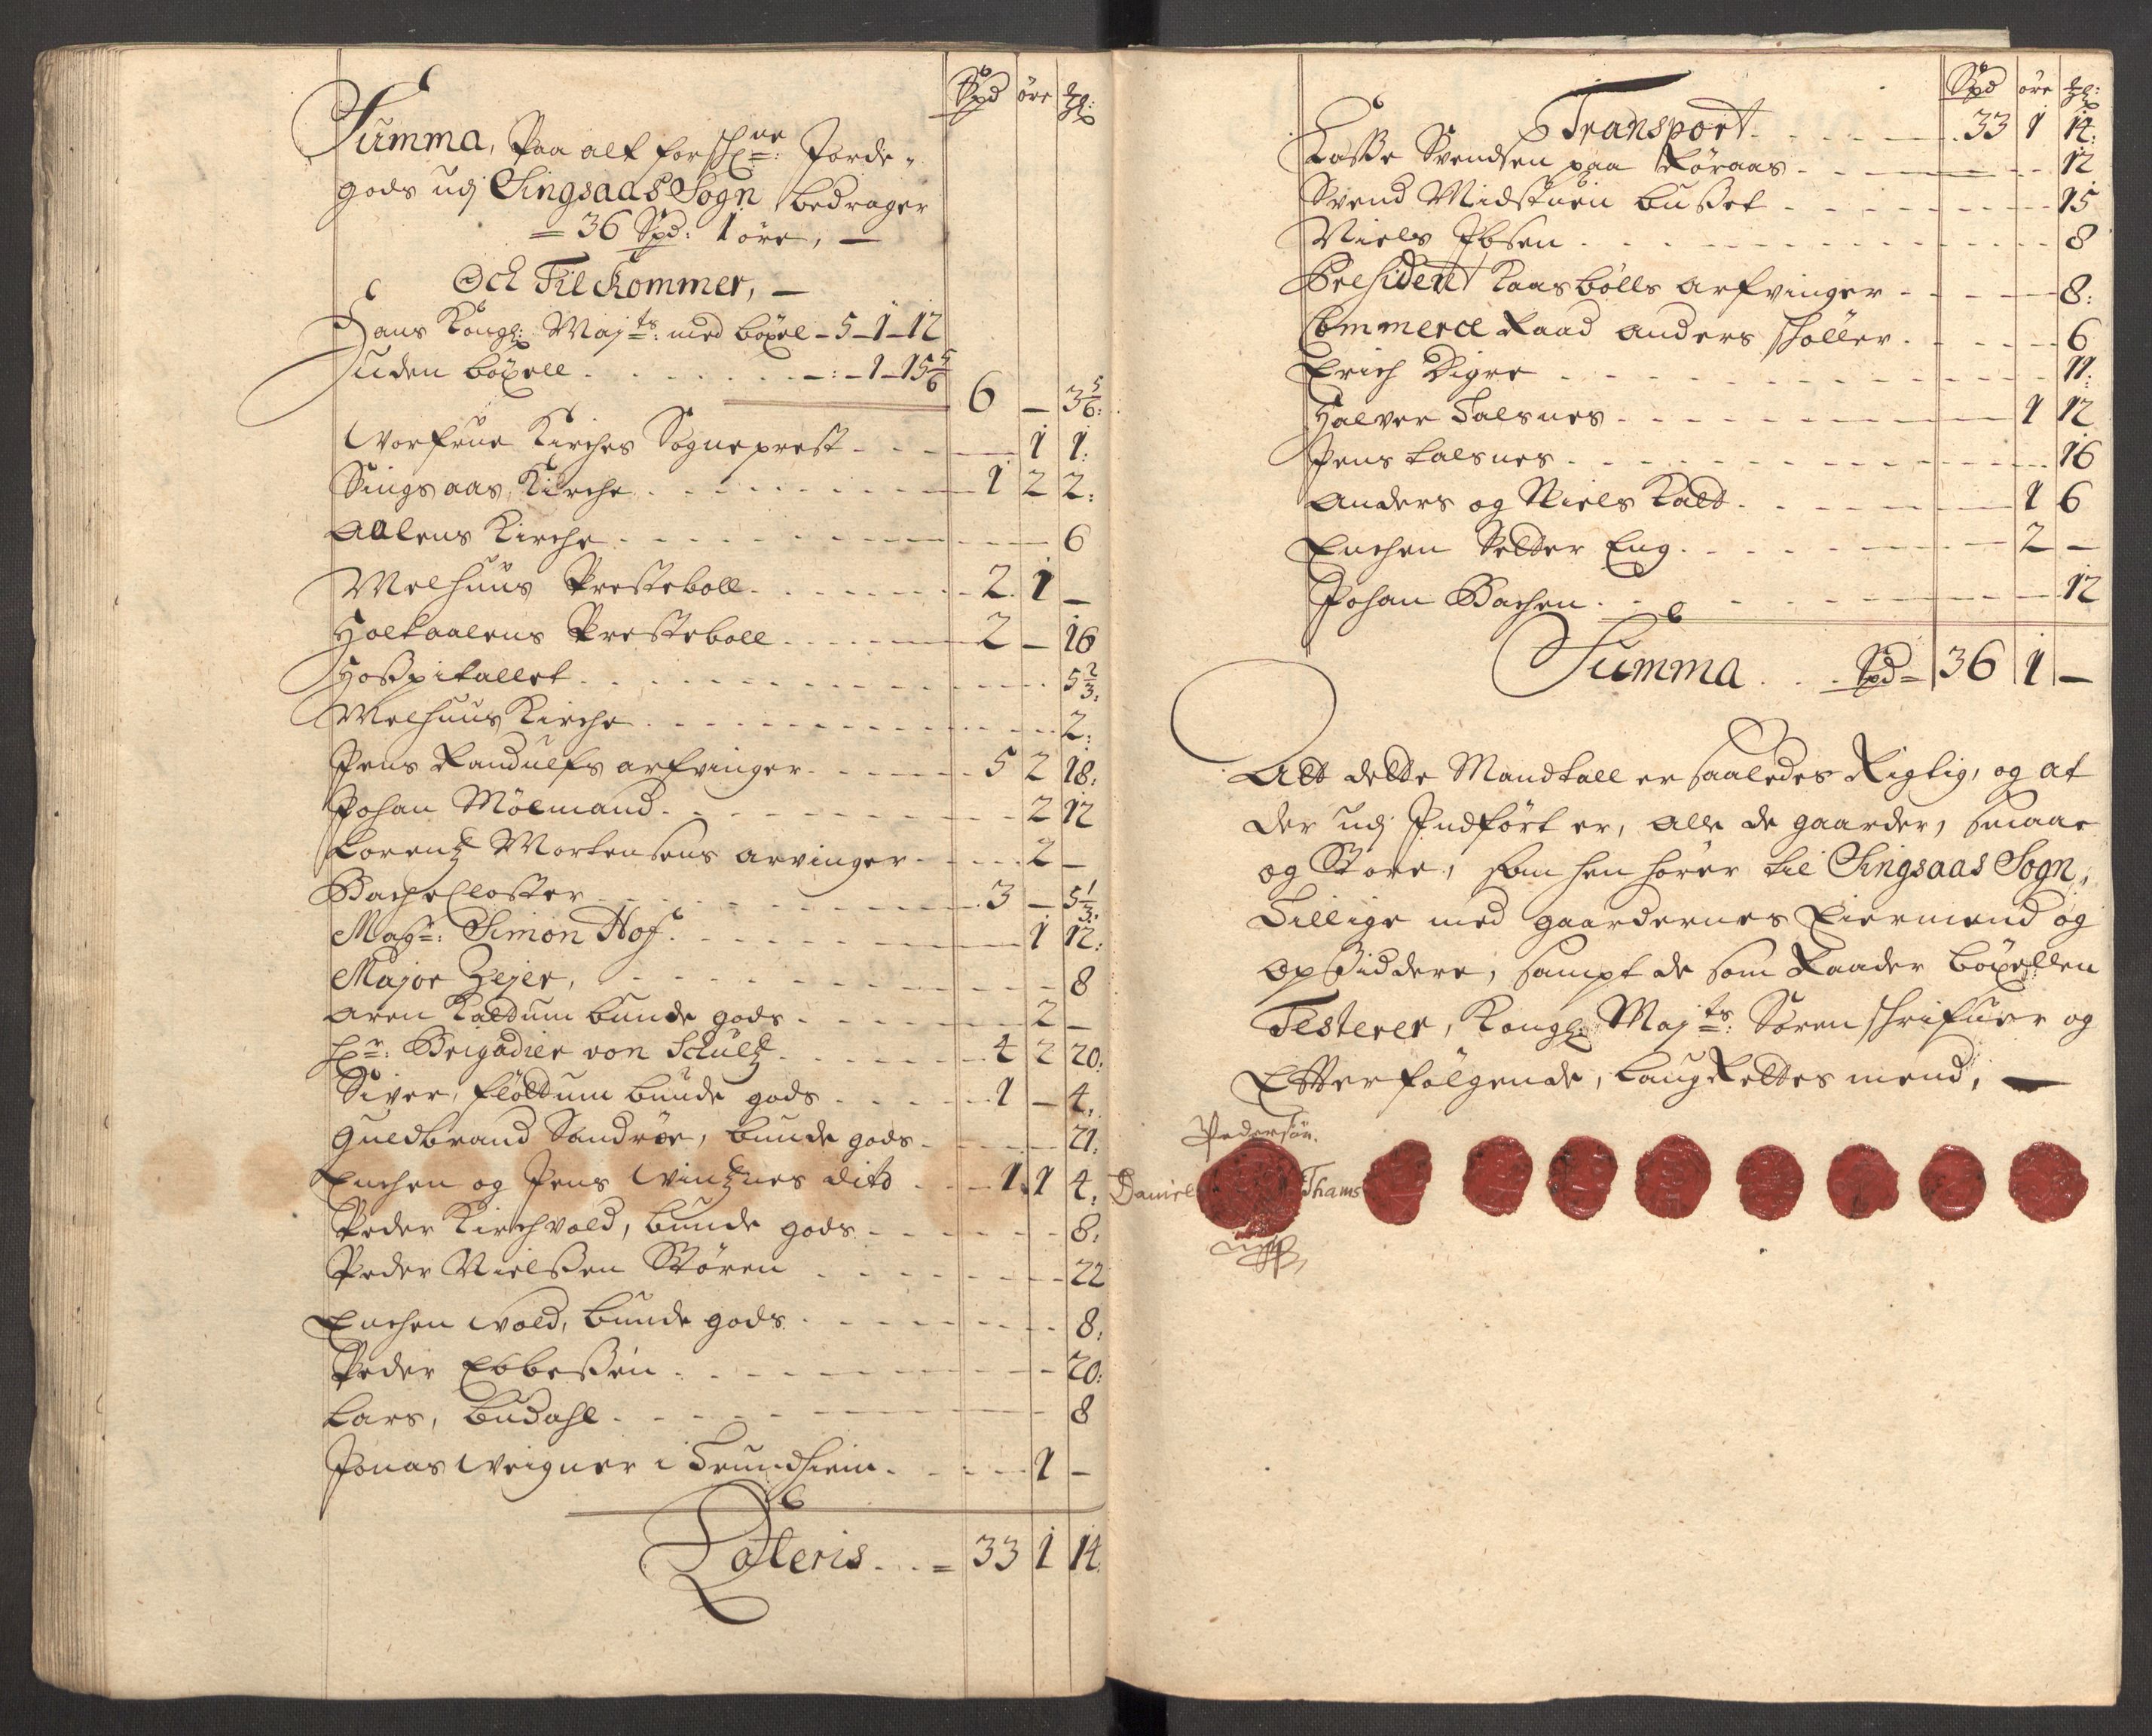 Spd öre ꝫl:
Summa, Paa alt forschne: Jorde-
gods udj Singsaas Sogn bedrager
= 36 Spd: 1 öre, —
Och Tilkommer, —
Hans Kongl: Majts: med böxel - 5 - 1 - 12
uden böxell . . . . - : - 1 - 15 5/6
6 — 3 5/6:
Worfrue Kirches Sogneprest . . . 1 1:
Singsaas Kirche . . . 1 2 2:
Aalens Kirche . . . 6
Melhuus Presteboll . . . 2 1 —
Holtaalens Presteboll . . . 2 — 16
Hospitallet . . . 5 2/3:
Melhuus Kirche . . . 2:
Jens Randulfs arfvinger . . . 5 2 18:
Johan Mölmand . . . 2 12
Lorentz Mortensens arvinger . . . 2 —
Bache Closter . . . 3 — 5 1/3:
Magr: Simon Hof . . . 1 12:
Major Zejer, . . . 8
Aren Kaldum bunde gods . . . 2 —
Hr: Brigadier von Schultz . . . 4 2 20:
Siver, Flöttum bunde gods . . . 1 — 4,
Guldbrand Sandröe, bunde gods . . . 21:
Enchen og Jens Wintznes dito . . . 1 1 4,
Peder Kirchvold, bunde gods . . . 8,
Peder Nielssen Stören . . . 22
Enchen Wold, bunde gods . . . 8,
Peder Ebbessen . . . 20:
Lars, Budahl . . . 8
Jonas Weigner i Trundhiem . . . 1 —
Lateris . . = 33 1 14
Spd öre ꝫl:
Transport . . . 33 1 14:
Lasse Svendsen paa Röraas . . . 12
Svend Midstuen busset . . . 15
Niels Ibsen . . . 8
President Kaasbölls arfvinger . . . 8:
Commerce Raad Anders Schöller . . . 6
Erich Digre . . . 11:
Halver Talsnes . . . 1 12
Jens Talsnes . . . 16
Anders og Niels Kald . . . 1 6
Enchen Setter Eng . . . 2 —
Johan Bachen . . . 12
Summa . . . Spd = 36 1 —
Alt dette Mandtall er saaledes Rigtig, og at
der udj Indfört er, alle de gaarder, smaae
og Store, som hen hörer til Singsaas Sogn,
Tillige med gaardernes Eiermend og
Opsiddere, sampt de som Raader böxellen
Testerer, Kongl: Majts: Sorenschrifuer og
Efterfölgende, LaugRettes mend, —
Pedersön.
Daniel Thams